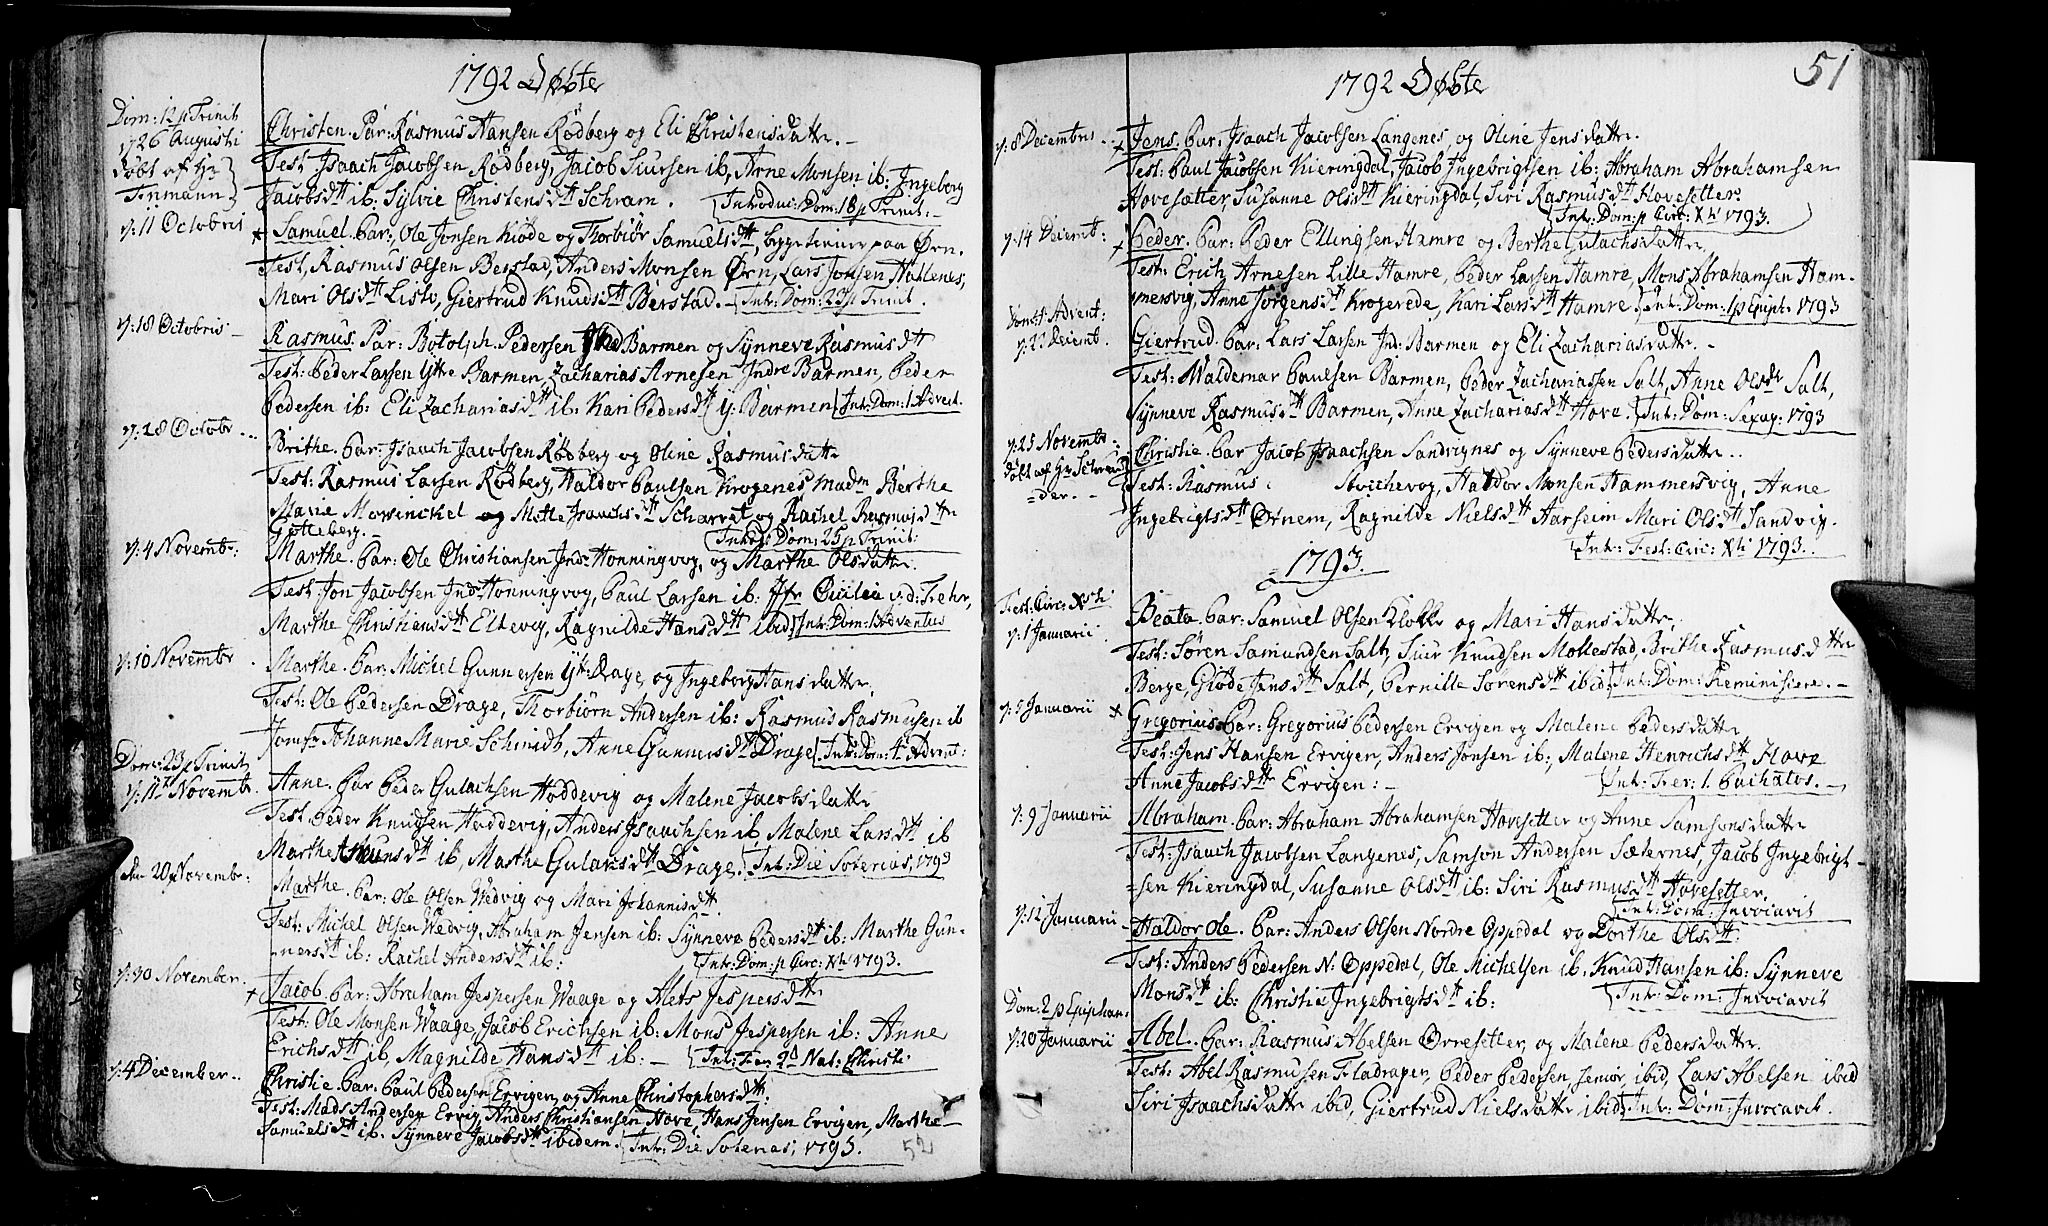 1792 Døbte
Dom: 12 p Trinit
26 Augusti
døbt af Hr
Irmann
Christen. Par: Rasmus Hansen Rödberg og Eli Christensdatter. -
Test: Isaach Jacobsen Rödberg, Jacob Siursen ib, Arne Monsen ib: Ingeborg
Jacobsdtt ib: Sylvie Christensdtt Schram. Introduc: Dom: 18 p Trinit: -
7: 11 Octobris
Samuel. Par: Ole Jonsen Kiöde og Torbiör Samuelsdtt, byggetienere paa Ørn.
Test, Rasmus Olsen Berstad, Anders Monsen Ørn, Lars Jonsen Hallenes,
Mari Olsdtt Listo, Giertrud Knudsdtt Berstad. - Int: Dom: 23 p Trinit.
7: 18 Octobris -
Rasmus. Par: Botolph Pedersen Barmen og Synneve Rasmusdtt
Test: Peder Larsen Ytre Barmen, Zacharias Arnesen Indre Barmen, Peder
Pedersen ib: Eli Zachariasdtt ib: Kari Pedersdtt y: Barmen Int: Dom: 1 Advent.
7: 28 Octobr ...
Brithe. Par: Isaach Jacobsen Rödberg og Oline Rasmusdatter
Test: Rasmus Larsen Rödberg, Haldor Paulsen Krogenes Madm Berthe
Marie Morsinckel og Mette Isaachsdtt Scharret og Rachel Rasmusdtr
Götteberg. - Introd: Dom: 25 p Trinit:
7: 4 Novembr:
Marthe. Par: Ole Christiansen Indr Honningvog, og Marthe Olsdatter.
Test: Jon Jacobsen Ind: Honningvog, Paul Larsen ib: Jfr Cicilia v.d: Fehr,
Marthe Christiansdtt Eltevig, Ragnilde Hansdtt ibid Int: Dom: 1 Adventus
7: 10 Novembr
Marthe. Par: Michel Gunnersen Ytr Drage, og Ingeborg Hansdatter,
Test: Ole Pedersen Drage, Thorbiörn Andersen ib: Rasmus Rasmusen ib
Jomfr Johanne Marie Schmidt, Anne Gunnersdtt Drage. Int: Dom: 4 Advent:
Dom: 23 p Trinit
7: 11 Novembr.
Anne. Par Peder Gulachsen Hoddevig og Malene Jacobsdatter
Test: Peder Knudsen Hoddevig, Anders Isaachsen ib Malene Larsdtt ib
Marthe Asmunsdtt ib, Marthe Gulachsdtt Drage. Int: Die Soterias, 1793
den 20 Novembr:
Marthe. Par: Ole Olsen Wedvig og Mari Johannisdtt.
Test: Michel Olsen Wedvig, Abraham Jensen ib: Synneve Pedersdtt ib: Marthe Gun-
nersdtt ib: Rachel Andersdtt ib: Int: Dom: p Circ: Xti 1793.
7: 30 November.
Jacob. Par: Abraham Jespersen Waage og Alets Jespersdtt
Test: Ole Monsen Waage, Jacob Erichsen ib: Mons Jespersen ib: Anne
Erichsdtt ib, Magnilde Hansdtt ib: - Int: Fer: 2d Nat: Christi
7: 4 December..
Christie. Par: Paul Pedersen Ervigen, og Anne Christophersdtt:
Test: Mads Andersen Ervig, Anders Christiansen Hove, Hans Jensen Ervigen, Marthe
Samuelsdtt ib. Synneve Jacobsdtt ibidem. Int: Die Soterias, 1793.
52
51
1792 Døbte
7: 8 Decembris
Jens. Par: Isaach Jacobsen Langenes, og Oline Jensdatter.
Test: Paul Jacobsen Kieringdal, Jacob Ingebrigtsen ib: Abraham Abrahamsen
Hovesætter, Susanne Olsdtt Kieringdal, Siri Rasmusdtt Hovesetter.
Int: Dom: p Circ: Xti 1793.
7: 14 Decembr:
Peder. Par: Peder Ellingsen Hamre og Berthe Gulachsdatter,
Test: Erich Arnesen Lille Hamre, Peder Larsen Hamre, Mons Abrahamsen Ham-
mersvig, Anne Jörgensdtt Krogerede, Kari Larsdtt Hamre Int: Dom: 1 p Epiph: 1793
Dom: 4 Advent:
7: 23 Decembr.
Giertrud. Par: Lars Larsen Ind: Barmen og Eli Zachariasdatter. -
Test: Waldemar Paulsen Barmen, Peder Zachariassen Salt, Anne Olsdtr Salt,
Synneve Rasmusdtt Barmen, Anne Zachariasdtt Hove. Int: Dom: Sexag: 1793
7: 25 Novembr:
døbt af Hr Schreu-
der. -
Christie. Par Jacob Isaachsen Sandvignes og Synneve Pedersdatter..
Test: Rasmus Stocchevog, Haldor Monsen Hammersvig, Anne
Ingebrigtsdtt Ørnem, Ragnilde Nielsdtt Aarseim Mari Olsdtt Sandvig.
Int: Fest: Circ: Xti 1793.
1793.
Fest: Circ: Xsti
7: 1 Januarii
Beata. Par: Samuel Olsen Klokke og Mari Hansdatter,
Test: Sören Samundsen Salt, Siur Knudsen Mollestad, Brithe Rasmusdtter
Berge, Giöde Jensdtt Salt, Pernille Sörensdtt ibid: Int: Dom: Reminiscere. -
7: 5 Januarii
Gregorius Par: Gregorius Pedersen Ervigen og Malene Pedersdatter
Test: Jens Hansen Ervigen, Anders Jonsen ib:, Malene Henrichsdtt Hove
Anne Jacobsdtr Ervigen: - Int: Fer: 1. Pachatos. -
7: 9 Januarii
Abraham. Par: Abraham Abrahamsen Hovesetter og Anne Samsonsdatter
Test: Isaach Jacobsen Langenes, Samson Andersen Sæternes, Jacob Ingebrigt-
sen Kieringdal, Susanne Olsdtt ib: Siri Rasmusdtt Hovesetter,
Int: Dom: Invocavit
7: 12 Januarii
Haldor Ole. Par: Anders Olsen Nordre Oppedal og Dorthe Olsdtt:
Test: Anders Pedersen N: Oppedal, Ole Michelsen ib. Knud Hansen ib: Synneve
Monsdtt ib: Christie Ingebrigtsdtt ib: Int: Dom: Invocavit
Dom: 2 p Epiphan.
7: 20 Januarii
Abel. Par: Rasmus Abelsen Orresetter, og Malene Pedersdatter.
Test: Abel Rasmusen Fladragen, Peder Pedersen senior, ibid, Lars Abelsen ibid
Siri Isaachsdatter ibid, Giertrud Nielsdatter ibid. Int: Dom: Invocavit.